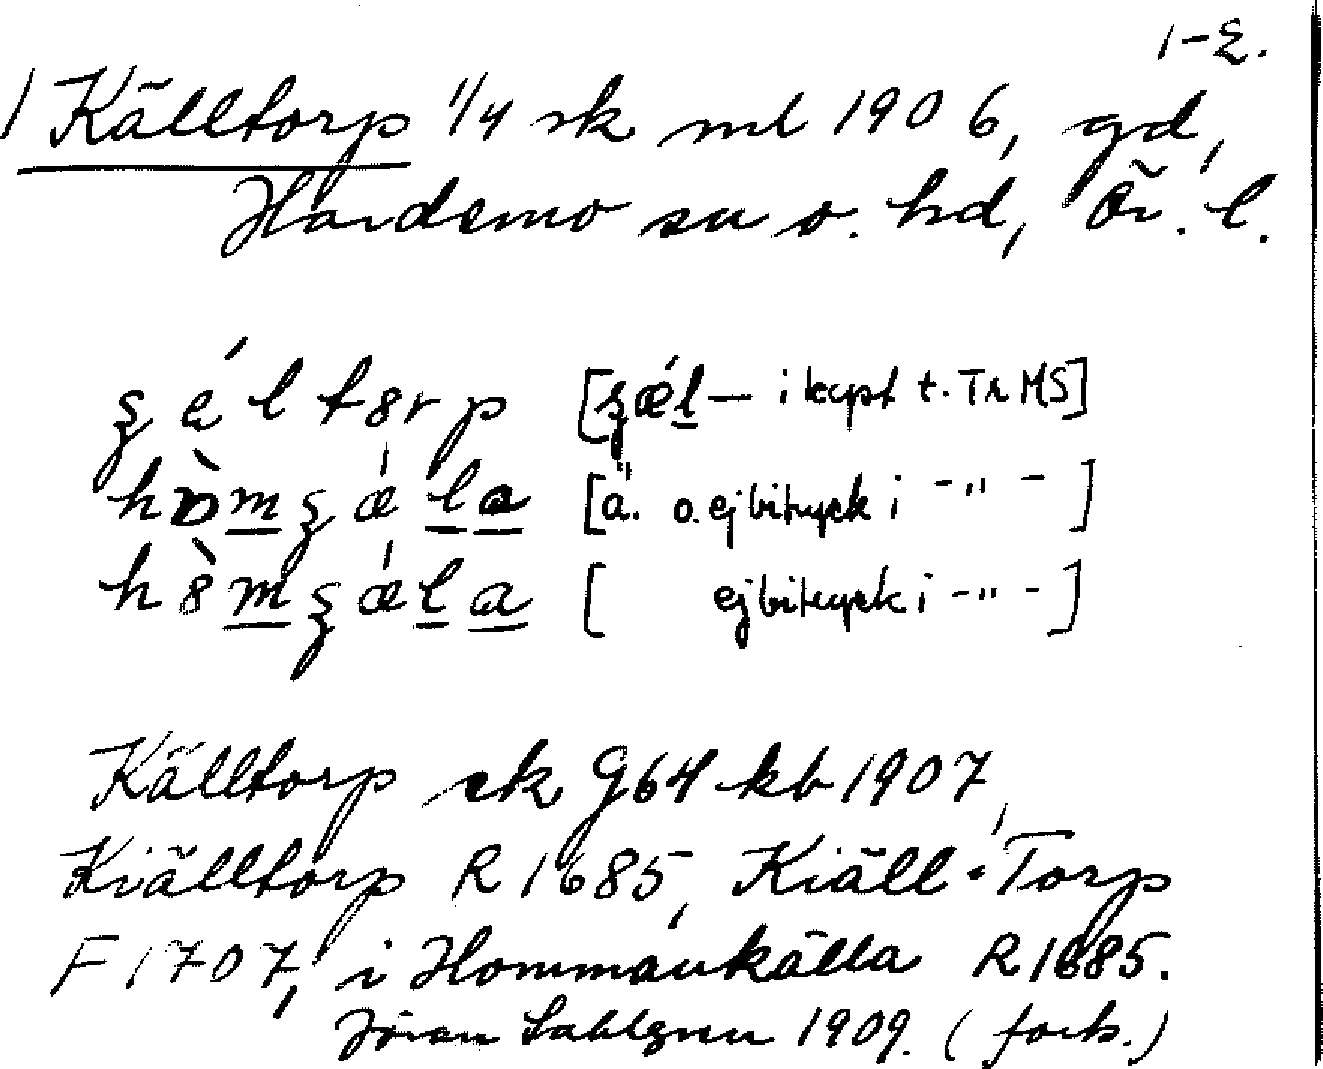 1-2.
1 Källtorp 1/4 sk ml 1906, gd,
Hardemo sn o. hd, Ör. l.
ʂá̤ltɞrp [ʂǽl̲— i kapt t. Tr MS]
hɒ̀m̲ʂǽl̲a̲ [ä. o. ej bitryck i -"-]
hɞ̀m̲ʂǽl̲a̲ [ ej bitryck i -"-]
Källtorp sk G64 kb 1907,
Kiälltorp R 1685, Kiäll-Torp
F 1707, i Hommankälla R 1685.
Jöran Sahlgren 1909. (forts.)